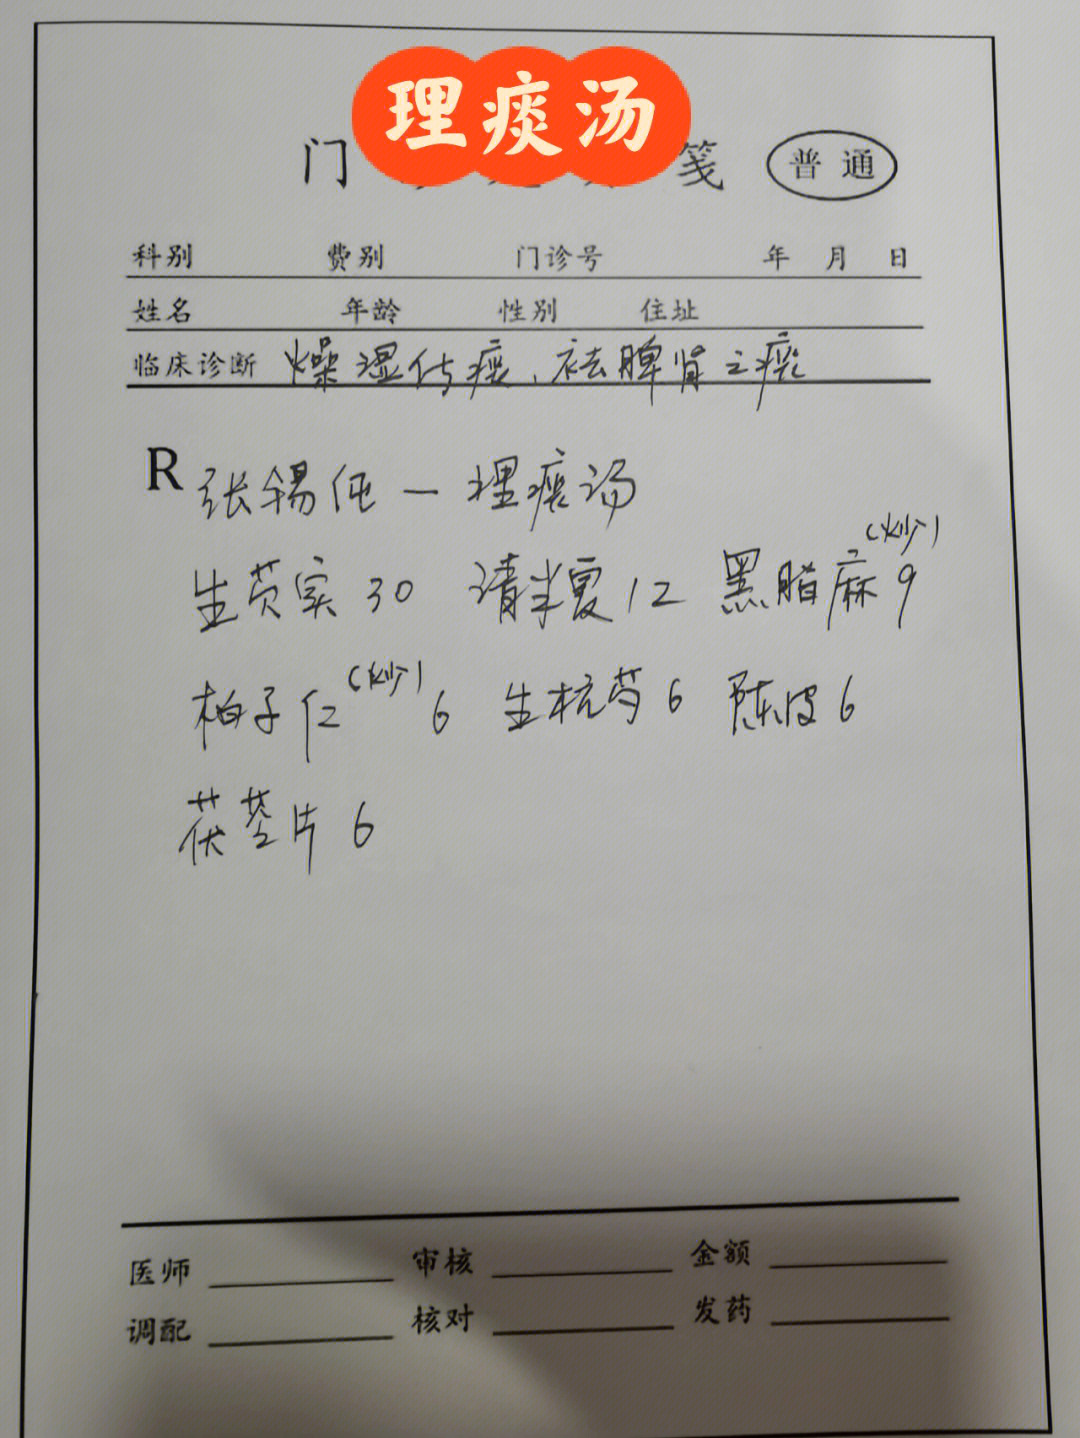 理痰汤
门 笺 普通
科别 费别 门诊号 年 月 日
姓名 年龄 性别 住址
临床诊断 燥湿化痰、祛脾肾之痰
R 张锡纯一理痰汤
生芡实30 清半夏12 黑脂麻(炒)9
柏子仁(炒)6 生杭芍6 陈皮6
茯苓片6
医师 审核 金额
调配 核对 发药